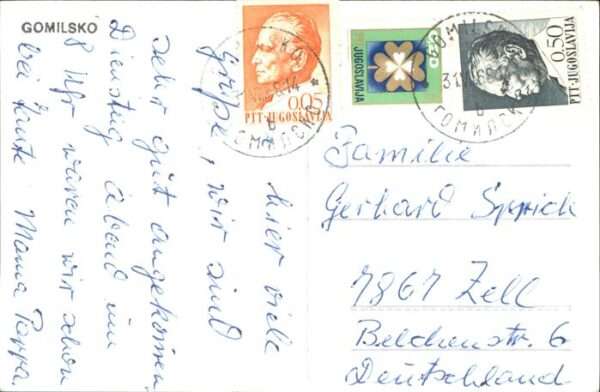 GOMILSKO
hier viele
Grüße, wir sind
sehr gut angekommen.
Dienstag abend um
8 Uhr waren wir schon
bei Tante Mama Pappa
0,05
PTT-JUGOSLAVIJA
JUGOSLAVIJA
0.50
PTT-JUGOSLAVIJA
ГОМИЛСКО
ГОМИЛСКО
Familie
Gerhard Sprich
7867 Zell
Belchenstr. 6
Deutschland